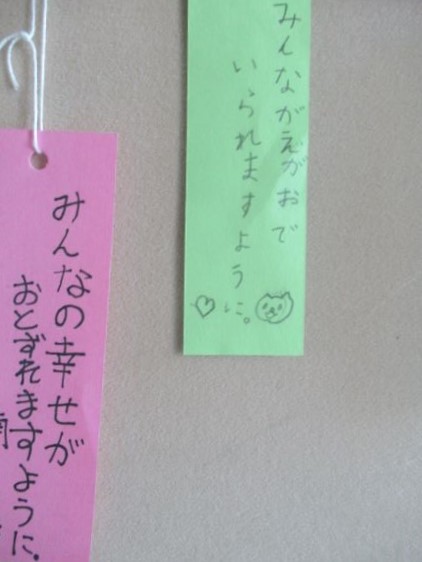 みんながえがおで
いられますように。
みんなの幸せが
おとずれますように。